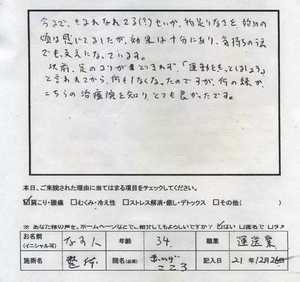 今まで、もまれなれてる(?)せいか、物足りなさを始めの
頃は感じてましたが、効果は十分にあり、気持ちの面
でも支えになっています。
以前、足のコリが
と言われてから、何もなくなったのですが、
こちらの治療院を知り、とても良かったです。
本日、ご来院された理由に当てはまる項目をチェックしてください。
☑肩こり・腰痛 □むくみ・冷え性 □ストレス解消・癒し・デトックス □その他( )
※ あなた様の声を、ホームページなどでご紹介してもよろしいですか? ☑はい □匿名で
お名前 (イニシャル可) 年齢 34. 職業 運送業
施術名 整体 院名(必須) こころ 記入日 21年12月26日